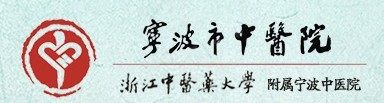 寧波市中醫院
浙江中醫藥大學 附属宁波中医院